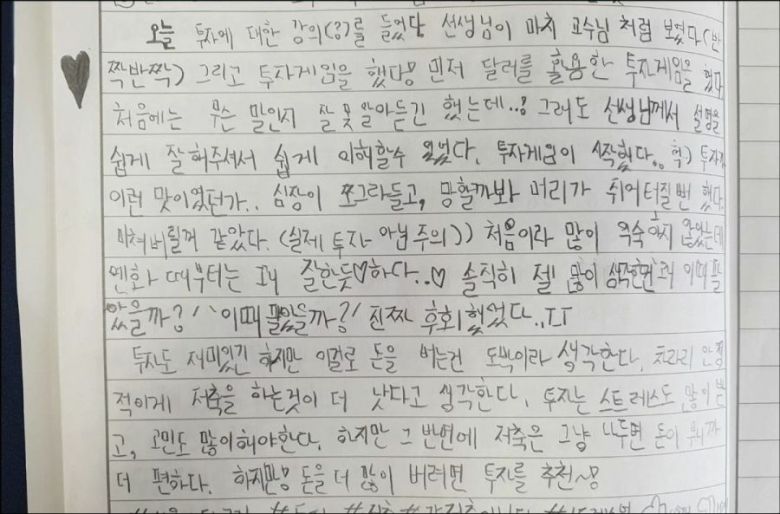 오늘 투자에 대한 강의(?)를 들었다 선생님이 마치 교수님 처럼 보였다(반
짝반짝) 그리고 투자게임을 했다양 먼저 달러를 활용한 투자게임을 했다
처음에는 무슨 말인지 잘 못 알아듣긴 했는데..! 그래도 선생님께서 설명을
쉽게 잘 해주셔서 쉽게 이해할수 있었다. 투자게임이 시작했다.. 헉) 투자가
이런 맛이였던가.. 심장이 쪼그라들고, 망할까봐 머리가 쥐어터질뻔 했다.
미쳐버릴꺼 같았다. (실제 투자 아님 주의)) 처음이라 많이 익숙하지 않았는데
엔화 때부터는 꽤 잘한듯♡하다..♡ 솔직히 젤 많이 생각한면 '왜 이때 팔
았을까?' '이때 팔았을까?' 진짜 후회했었다..ㅠㅠ
투자도 재미있긴 하지만 이걸로 돈을 버는건 도박이라 생각한다. 차라리 안정
적이게 저축을 하는것이 더 낫다고 생각한다. 투자는 스트레스도 많이 받
고, 고민도 많이해야한다. 하지만 그 반면에 저축은 그냥 냅두면 돈이 불니까
더 편하다. 하지만 돈을 더 많이 버려면 투자를 추천~양